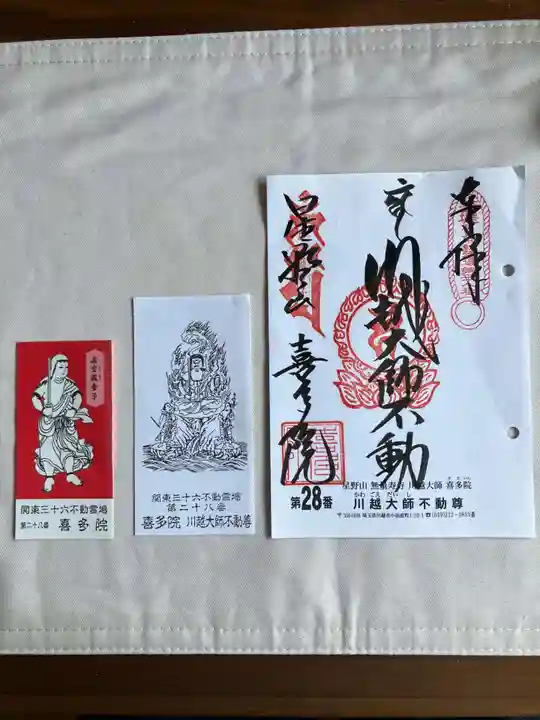 関東三十六不動霊場
第二十八番 喜多院
関東三十六不動霊場
第二十八番
喜多院 川越大師不動尊
奉拝
川越大師不動
星野山
喜多院
第28番
星野山 無量寿寺 川越大師 喜多院
かわ ごえ だい し
川越大師不動尊